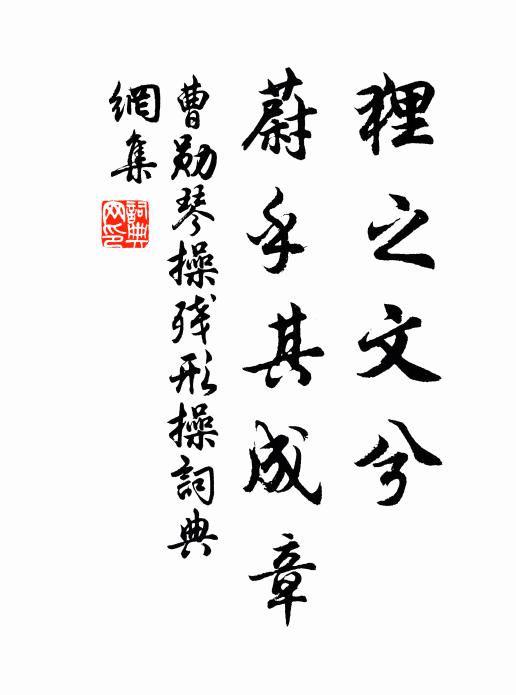 狸之文兮
蔚乎其成章
曹勋琴操残形操詞典
網集
詞典
网印